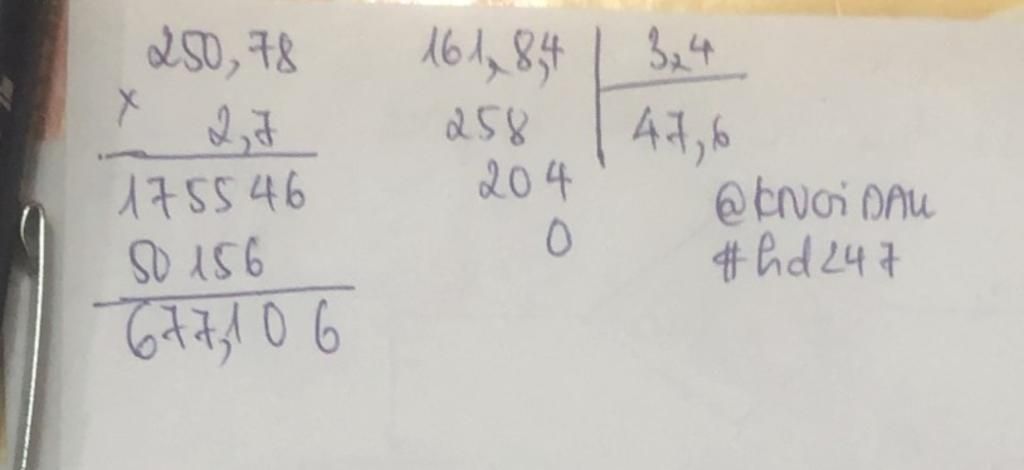 250,78
×
2,7
175546
50156
677,106
161,8,4 3,4
258 47,6
204
0
@KNOiDAU
#hd247